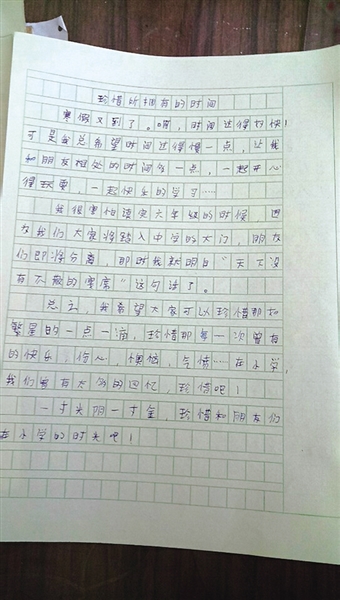 珍惜所拥有的时间
寒假又到了。唉，时间过得好快！
可是我总希望时间过得慢一点，让我
和朋友相处的时间多一点，一起开心
得玩耍，一起快乐的学习……
我很害怕读完六年级的时候，因
为我们大家将踏入中学的大门，朋友
们即将分离，那时我就明白“天下没
有不散的宴席”这句话了。
总之，我希望大家可以珍惜那如
繁星的一点一滴，珍惜那每一次曾有
的快乐，伤心，懊恼，气愤……在小学，
我们曾有太多的回忆，珍惜吧！
一寸光阴一寸金，珍惜和朋友们
在小学的时光吧！